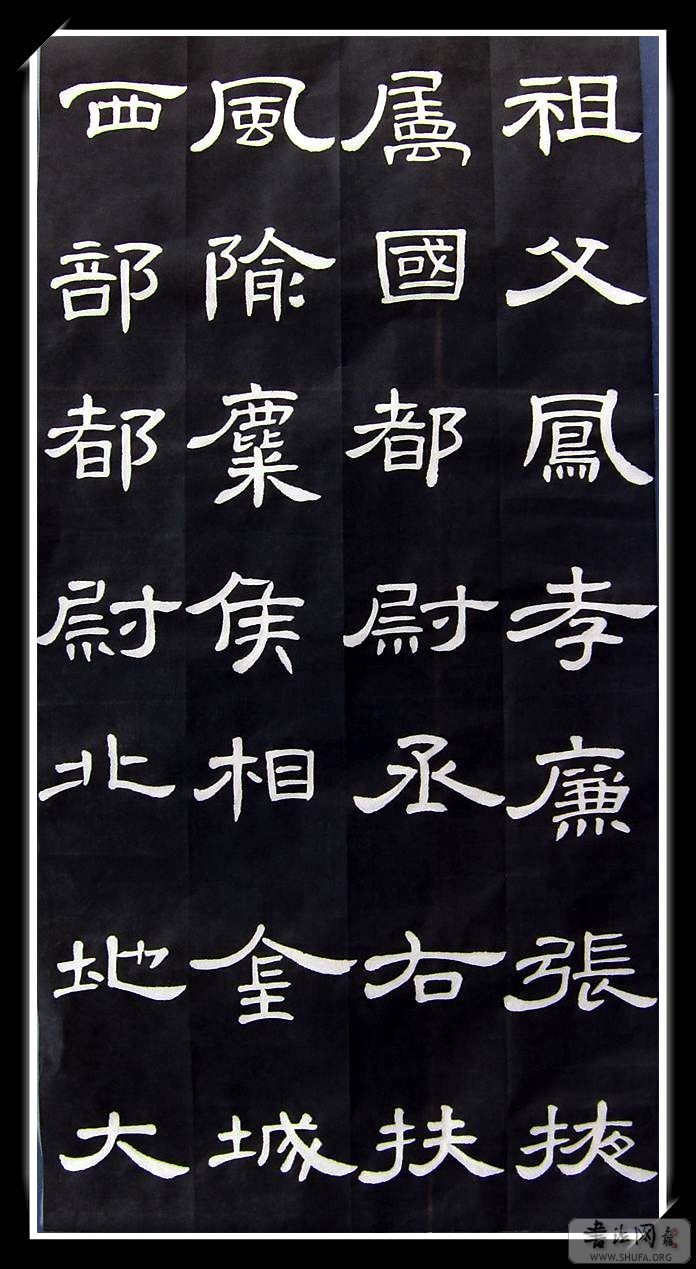 祖父鳳孝廉張掖
屬國都尉丞右扶
風隃麋侯相金城
西部都尉北地大
书法网
WWW.SHUFA.ORG